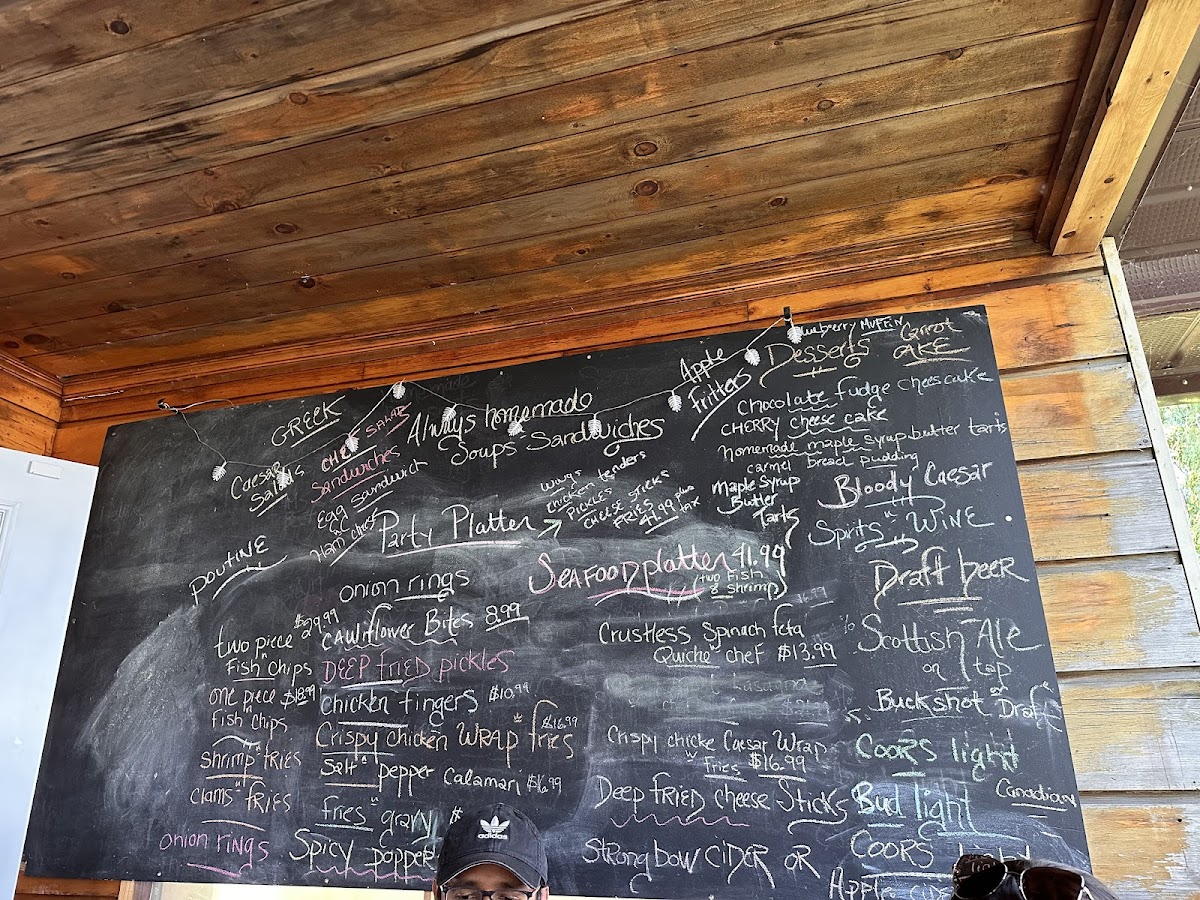 GREEK
Caesar
Salads
CHEF SALAD
Sandwiches
Egg
Sandwich
Ham cheese
Always homemade
Soups " Sandwiches
Apple
fritters
Blueberry MUFFIN
Desserts
Carrot
CAKE
Chocolate fudge cheescake
CHERRY cheese cake
homemade maple syrup butter tarts
carmel bread pudding
Maple Syrup
Butter
Tarts
Bloody Caesar
Spirits " WINE
Draft beer
Scottish Ale
on Tap
Buckshot on Draft
COORS light
Bud light
Canadian
COORS
Party Platter
Wings
chicken tenders
PICKLES
CHEESE STICKS
FRIES
41.99 plus tax
SEAFOOD platter 41.99
(two fish
& shrimp)
POUTINE
two piece $29.99
Fish " Chips
one piece $18.99
fish " chips
shrimp " fries
clams " fries
onion rings
onion rings
CAUliflower Bites 8.99
DEEP fried pickles
chicken fingers $10.99
Crispy chicken WRAP " fries $16.99
Salt " pepper Calamari $16.99
fries " gravy $
Spicy popper
16.99
Crustless Spinach feta
Quiche " chef $13.99
Lasagna
Crispy chicke Caesar Wrap
" Fries $16.99
Deep FRIED cheese Sticks
Strongbow CIDER OR
Apple
adidas